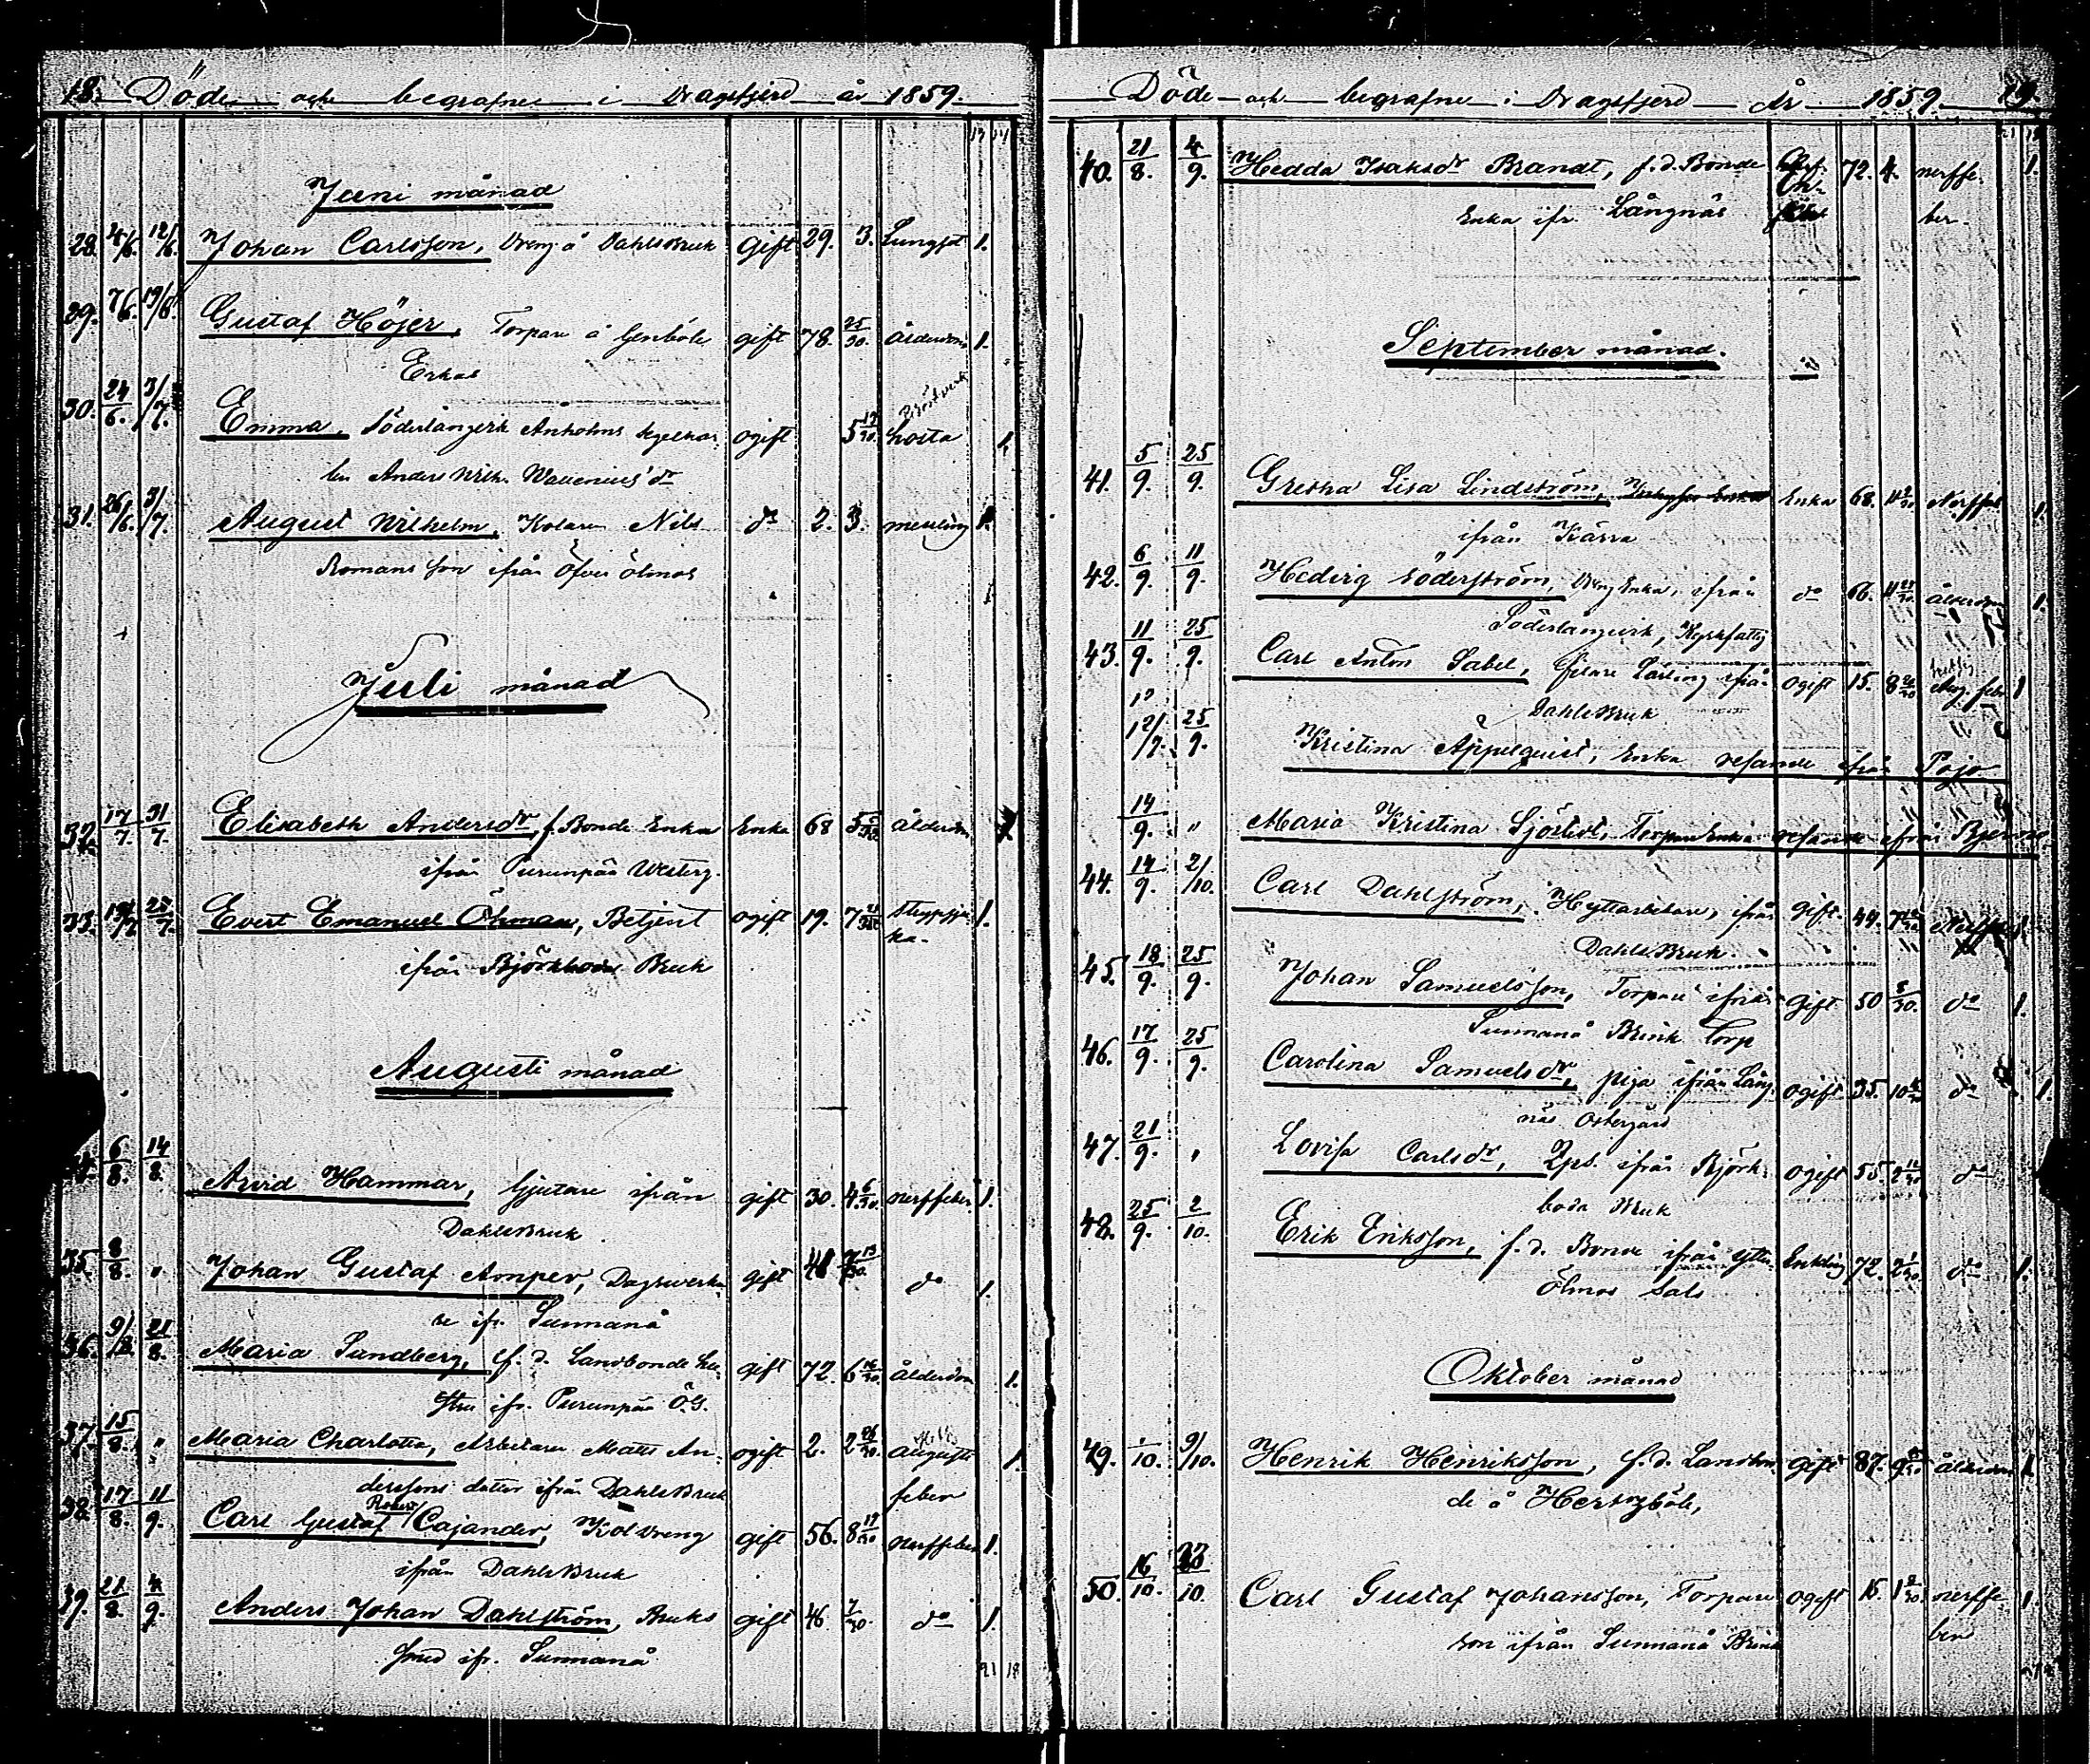 18. Döde och begrafne i Dragsfjerd år 1859.
Juni månad
28. 4/6. 12/6. Johan Carlsson, Dreng å Dahlsbruk gift 29. 3. Lungsot 1.
29. 7/6. 19/6. Gustaf Höjer, Torpare å Genböle gift 78. 25/30 ålderdom 1.
Erkas
30. 24/6. 3/7. Emma, Söderlångvik Anholms ogift 5 12/30. Bröstverk hosta 1.
Anders Wilh. Wallenius' dr
31. 26/6. 3/7. August Wilhelm, Kolaren Nils do 2. 3. messling 1.
Romans son ifrån Öfver Ölmos
Juli månad
32. 17/7. 31/7. Elisabeth Andersdr, f. Bonde Enka Enka 68 5 ålderdom
ifrån Purunpää Westerg.
33. 19/7 Evert Emanuel Öhman, Betjent ogift 19. 7 1.
ifrån Björkboda Bruk
Augusti månad
6/8. 14/8. Arvid Hammar, Gjutare ifrån gift 30. 4 6/30. nerffeber 1.
Dahlsbruk
35. 8/8. " Johan Gustaf Amper, Dagsverka- gift 13/30. do 1.
re ifr. Sunnanå
36. 9/8. 21/8. Maria Sundberg, f. d. Landbonde hu- gift 72. 6 16/30. ålderdom 1.
stru ifr. Purunpää Ö.G.
37. 15/8. " Maria Charlotta, Arbetaren Matts An- ogift 2. 2 26/30. 1.
derssons dotter ifrån Dahlsbruk feber
38. 17/8. 11/9. Carl Gustaf Robert Cajander, Koldreng gift 56. 8 19/30 nerffeber 1.
ifrån Dahlsbruk
39. 21/8. 4/9. Anders Johan Dahlström, Bruks gift 46. 7/30. do 1.
smed ifr. Sunnanå
21 18
Döde och begrafne i Dragsfjerd År 1859. 19.
40. 21/8. 4/9. Hedda Isaksdr Brandt, f. d. Bonde 72. 4. nerffe- 1.
Enka ifr. Långnäs ber
September månad.
41. 5/9. 25/9. Gretha Lisa Lindström, Enka 68. 1.
ifrån Kärra
42. 6/9. 11/9. Hedvig Söderström, Dreng Enka, ifrån do 66. 11 ålderdom 1.
Söderlångvik, Kyrkfattig
43. 11/9. 25/9. Carl Anton Sabel, Filare Lärling ifrån ogift 15. 8 1
Dahlsbruk
12/9. 25/9. Kristina Appelquist, Enka resande ifrån Pojo
14/9. " Maria Kristina Sjöstedt, Torpare Enka resande ifrån Bjerno
44. 14/9. 2/10. Carl Dahlström, Hyttarbetare, ifrån gift. 44. 7
Dahlsbruk.
45. 18/9. 25/9. Johan Samuelsson, Torpare ifrån gift 50 do 1.
Sunnanå Brink Torp
46. 17/9. 25/9. Carolina Samuelsdr, piga ifrån Lång- ogift 35. 10 do 1.
näs Östergård
47. 21/9. " Lovisa Carlsdr, ifrån Björk- ogift 55. 2 do
boda Bruk
48. 25/9. 2/10. Erik Eriksson, f. d. Bonde ifrån Ytter- Enkling 72. 2 do 1.
Ölmos Sals
Oktober månad
49. 1/10. 9/10. Henrik Henriksson, f. d. Landbon- gift 87. 9 ålderdom 1
de å Hertzböle,
50. 16/10. 23/10. Carl Gustaf Johansson, Torpare ogift 15. 1 nerffe- 1.
son ifrån Sunnanå Brink ber